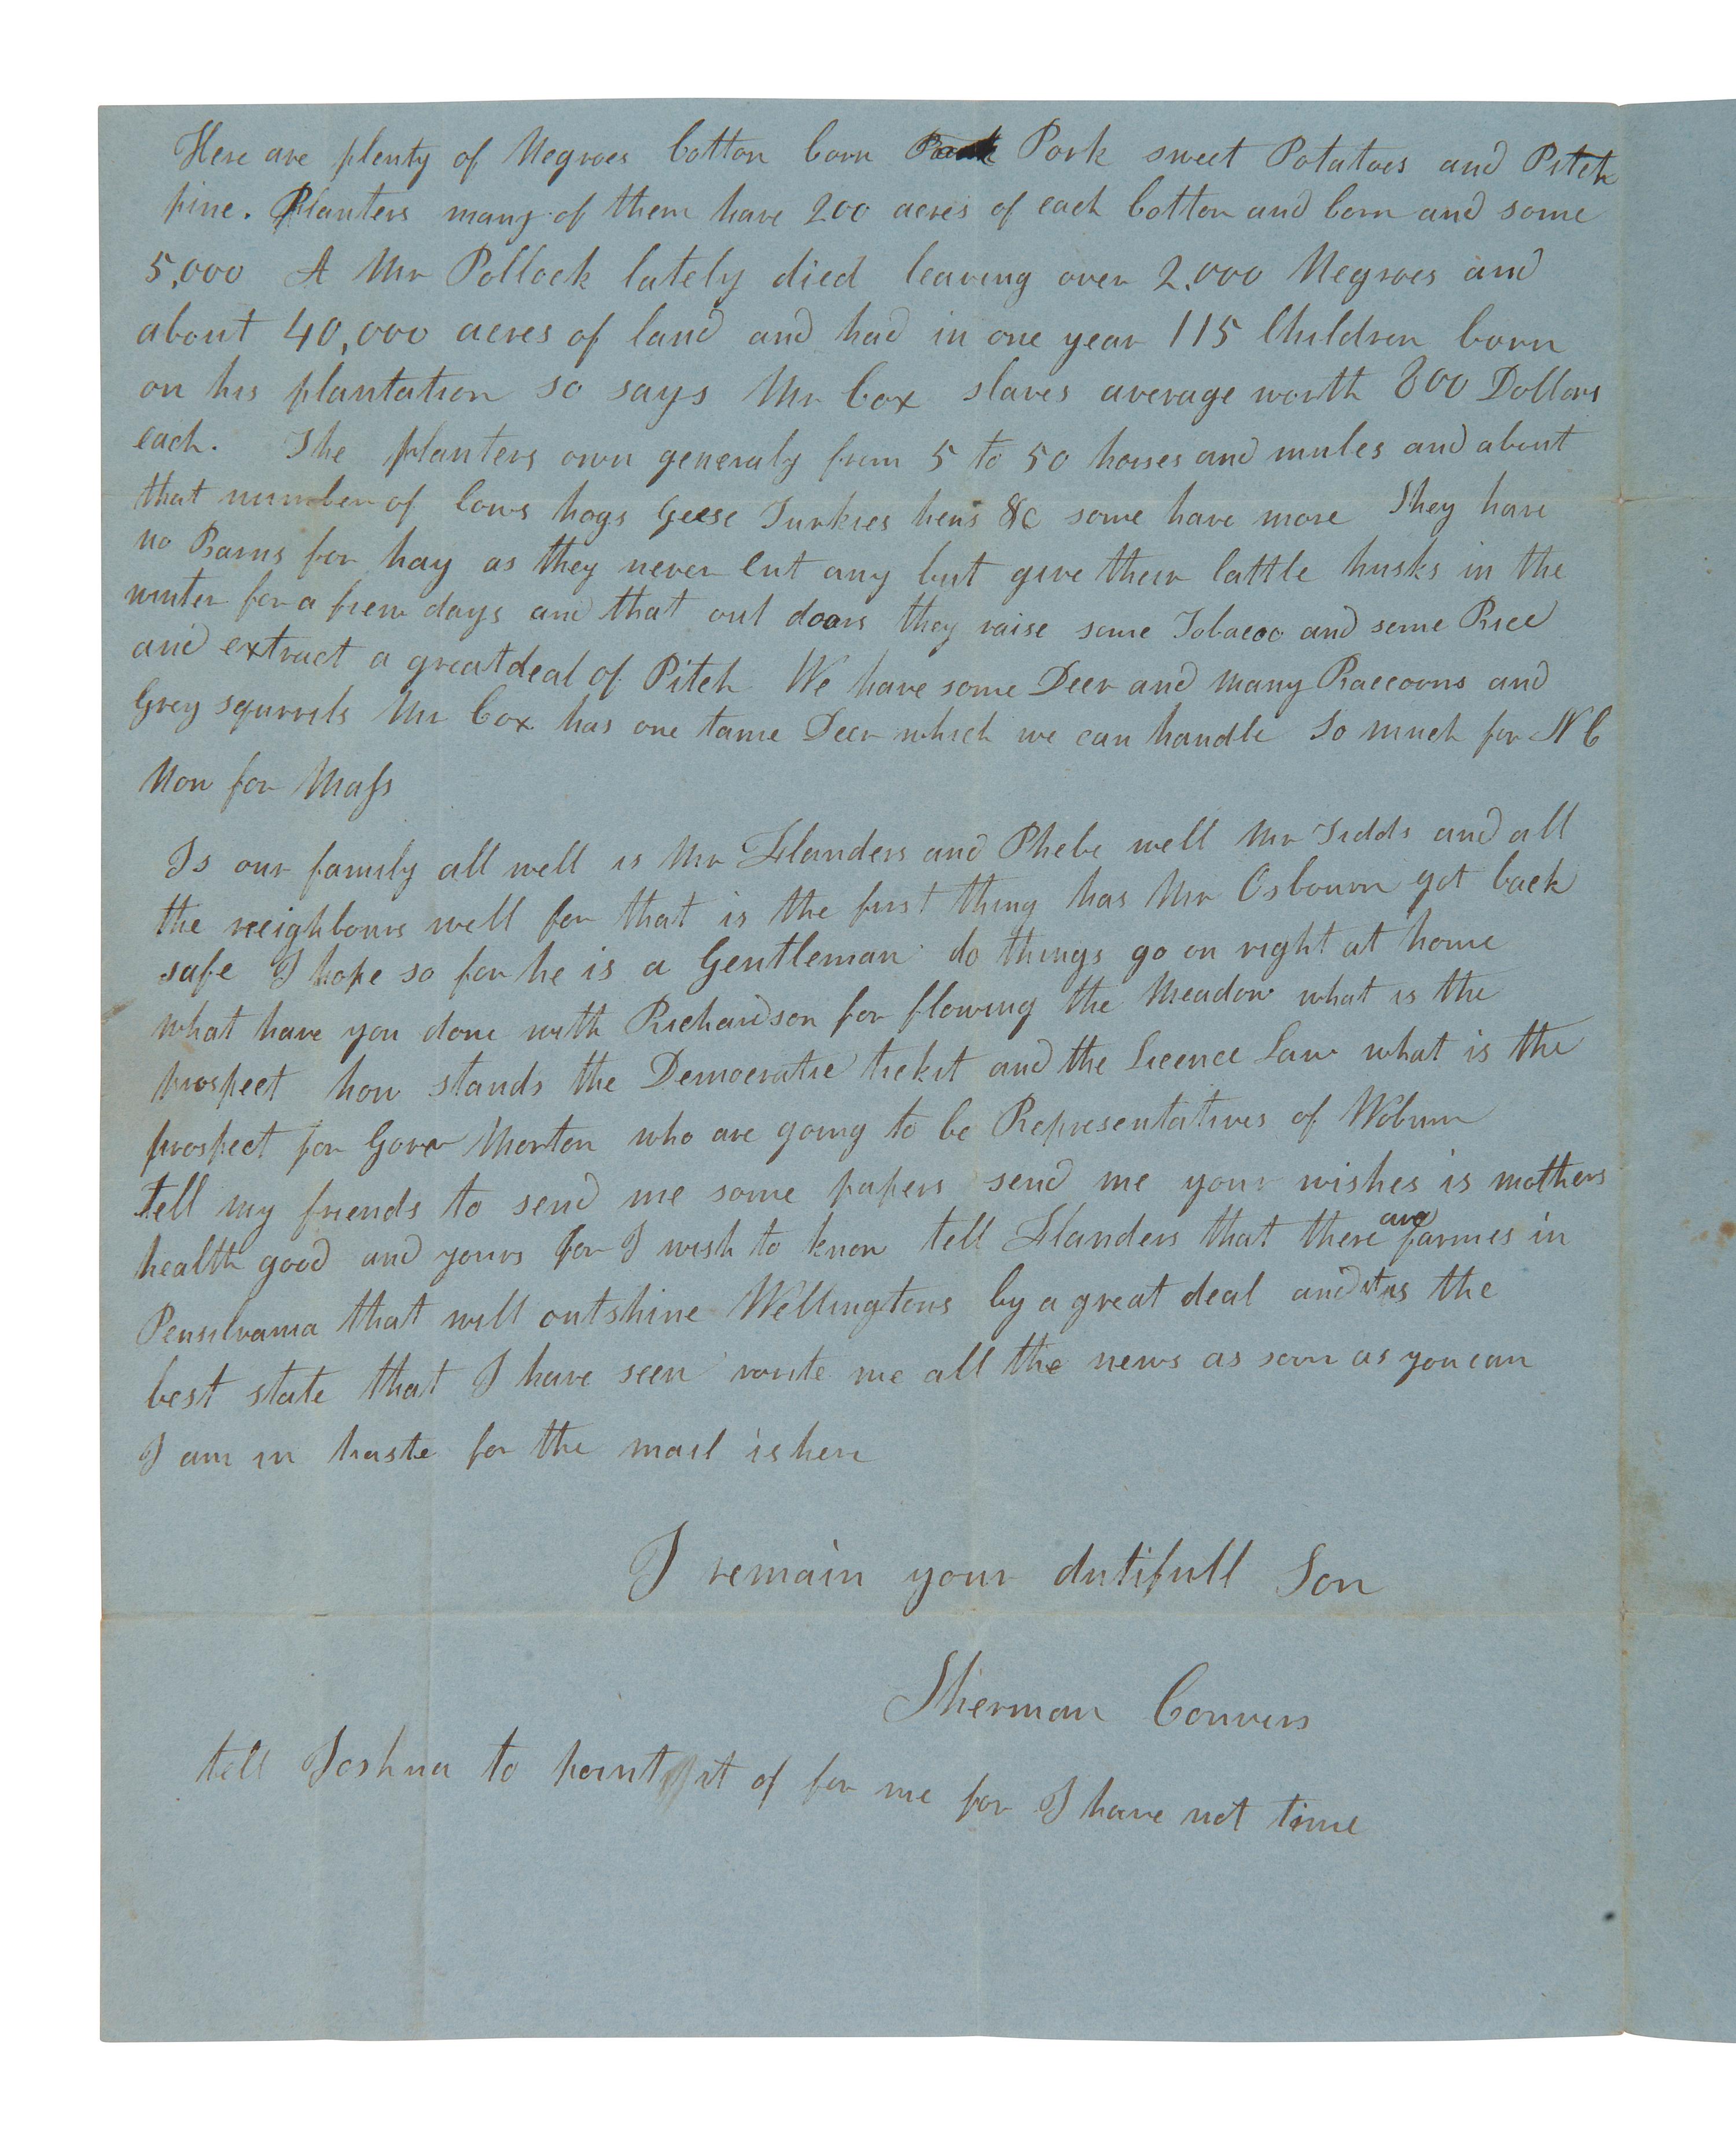 Here are plenty of Negroes Cotton Corn Pork sweet Potatoes and Pitch
pine. Planters many of them have 200 acres of each Cotton and Corn and some
5,000 A Mr Pollock lately died leaving over 2,000 Negroes and
about 40,000 acres of land and had in one year 115 Children born
on his plantation so says Mr Cox slaves average worth 800 Dollars
each. The planters own generaly from 5 to 50 horses and mules and about
that number of Cows hogs Geese Turkies hens &c some have more They have
no Barns for hay as they never Cut any but give their Cattle husks in the
winter for a frew days and that out doors they raise some Tobacoo and some Rice
and extract a great deal of Pitch We have some Deer and many Raccoons and
Grey squrrels Mr Cox has one tame Deer which we can handle So much for N C
Now for Mass
Is our family all well is Mr Flanders and Phebe well Mr Tidds and all
the neighbours well for that is the first thing has Mr Osbourn got back
safe I hope so for he is a Gentleman do things go on right at home
what have you done with Richardson for flowing the Meadow what is the
prospect how stands the Democratic tickit and the Licence Law what is the
prospect for Gover Morton who are going to be Representatives of Woburn
tell my friends to send me some papers send me your wishes is mothers
health good and yours for I wish to know tell Flanders that there are farmes in
Pensilvania that will outshine Wellingtons by a great deal and it is the
best state that I have seen write me all the news as soon as you can
I am in haste for the mail is here
I remain your dutifull Son
Sherman Convers
tell Joshua to point it of for me for I have not time